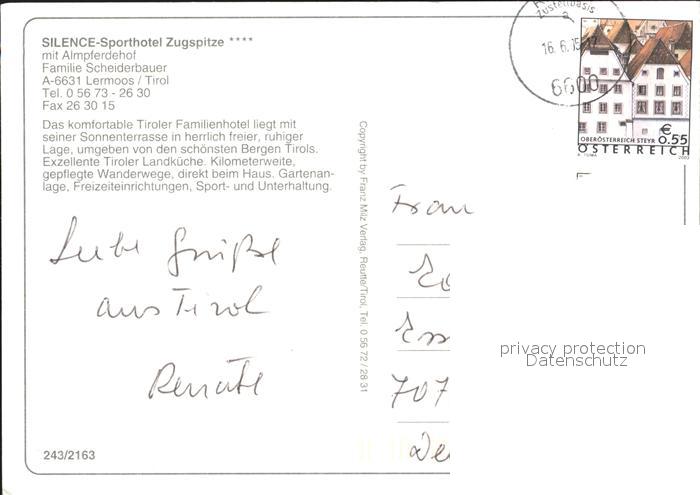 SILENCE-Sporthotel Zugspitze ****
mit Almpferdehof
Familie Scheiderbauer
A-6631 Lermoos / Tirol
Tel. 0 56 73 - 26 30
Fax 26 30 15
Das komfortable Tiroler Familienhotel liegt mit
seiner Sonnenterrasse in herrlich freier, ruhiger
Lage, umgeben von den schönsten Bergen Tirols.
Exzellente Tiroler Landküche. Kilometerweite,
gepflegte Wanderwege, direkt beim Haus. Gartenan-
lage, Freizeiteinrichtungen, Sport- und Unterhaltung.
Liebe Grüße
aus Tirol
Renate
243/2163
Copyright by Franz Milz Verlag, Reutte/Tirol, Tel. 0 56 72 / 28 31
Zustellbasis
a
16. 6.
6600
€
0.55
OBERÖSTERREICH STEYR
ÖSTERREICH
Frau
Ess
707
privacy protection
Datenschutz